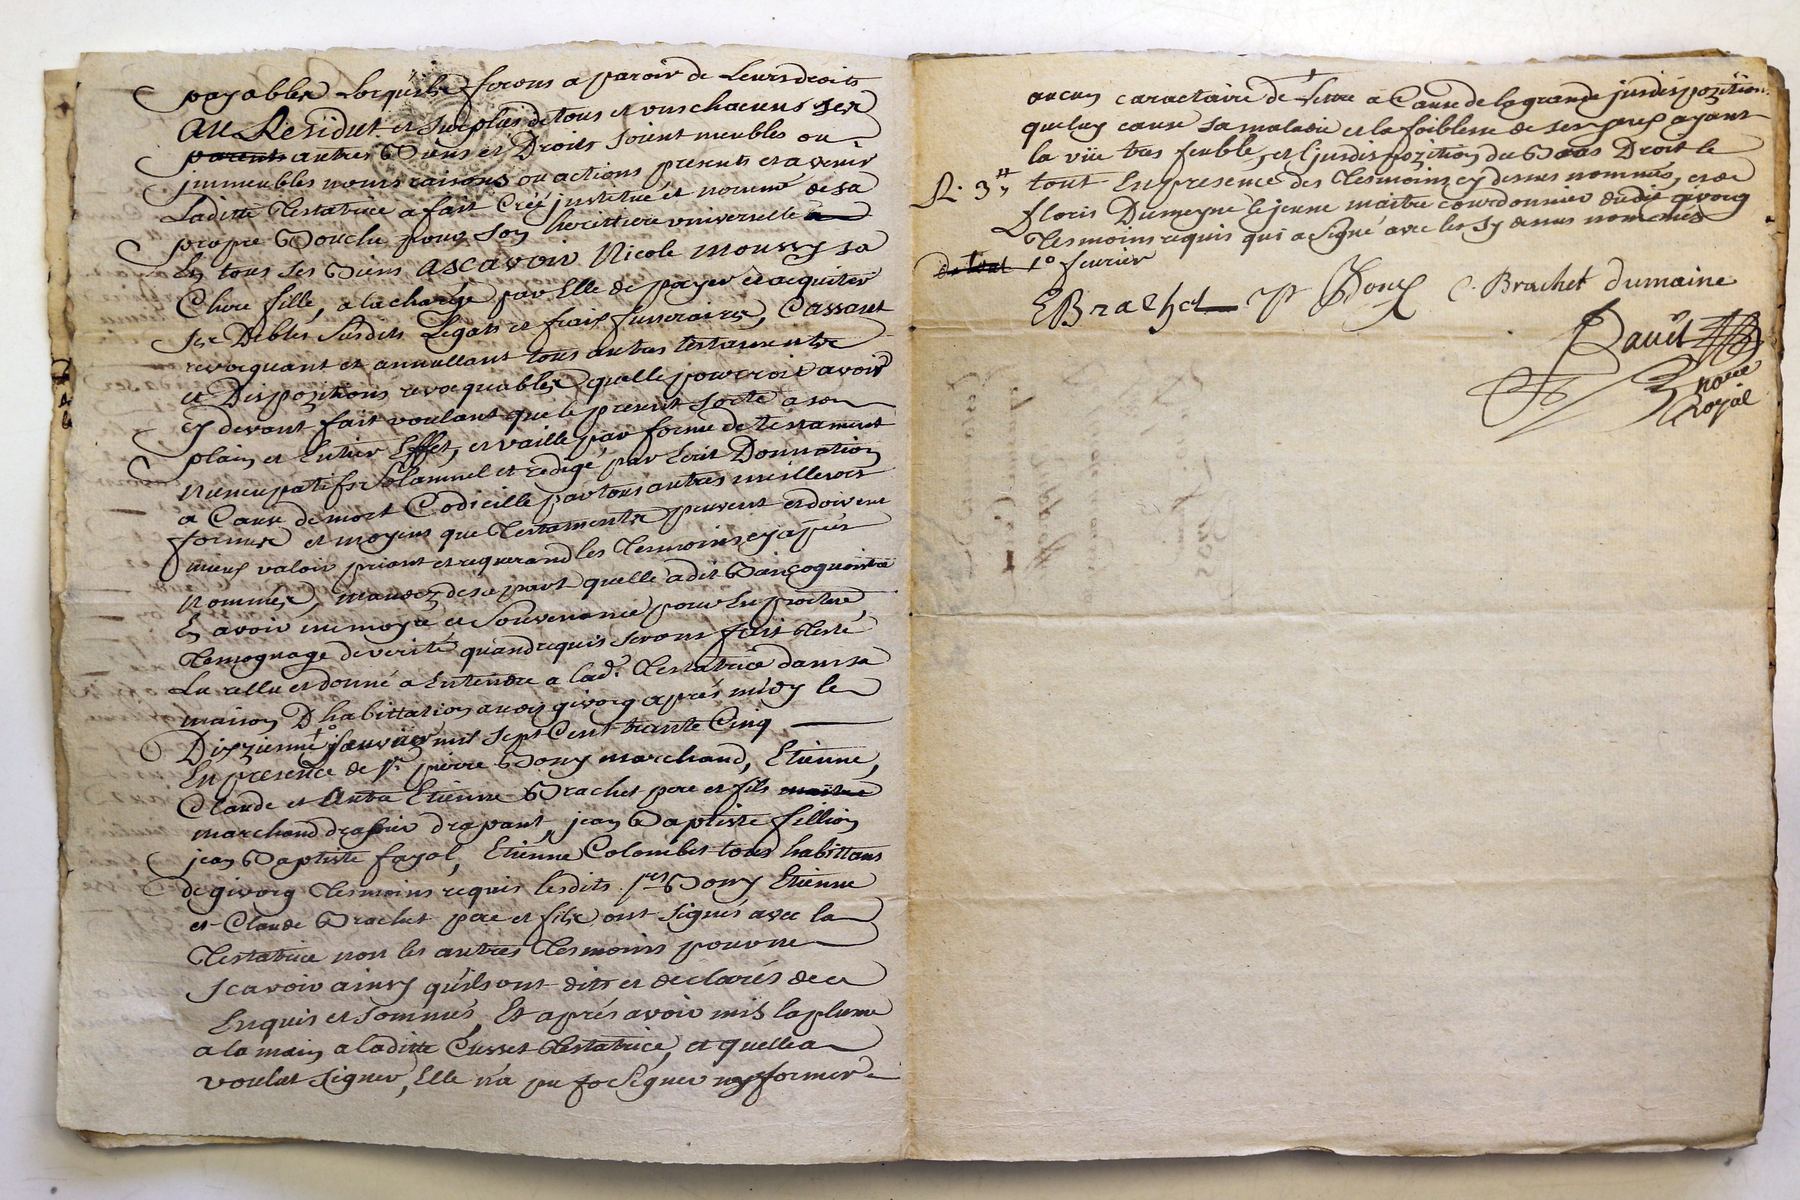 payables Lorsquils seront a paroir de Leurs droits
Au Residut et surplus de tous et uns chacuns ses
parents autres Biens et Droits soient meubles ou
jmmeubles noms raisons ou actions presents et a venir
Laditte Testatrice a fait Créé jnstitué et nommé de sa
propre Bouche pour son herittiere universelle a
En tous ses Biens Ascavoir Nicole moussy sa
Chere fille, a la charge par Elle de payer et acquiter
ses Debtes Susdits Legats et frais funeraires, Cassant
revocquant et annullant tous autres testaments
et Dispozitions revocquables quelle pourroit avoir
Cy devant fait voulant que le present sorte a son
plain et Entier Effet, et vaille par forme de testament
Nuncupatif Solamnel et redigé par Ecrit Donnation
a Cause de mort Codicille par tous autres meilleures
formes et moyens que Testaments peuvent et doivent
mieux valoir priant et requerand les Tesmoins cy apres
Nommés, mandez de sa part quelle a dit Bien cognoistre
En avoir memoyre et Souvenance pour En porter
Temognage de verité quand requis seront fait Testé
Lu rellu et donné a Entendre a lad.e Testatrice dans sa
maison Dhabittation audit givorg aprés midy le
Dixzieme janvier mil sept Cent trante Cinq
En presence de Sr. pierre Bony marchand, Etienne,
Claude et Autre Etienne Brachet pere et fils maitre
marchand drapier drapant, jean Baptiste fillion
jean Baptiste fayol, Etienne Colombet tous habittans
de givorg Tesmoins requis lesdits Srs Bony Etienne
et Claude Brachet pere et fils ont signés avec la
Testatrice non les autres Tesmoins pour ne
scavoir ainsy quils ont dits et declarés de ce
Enquis et sommés, Et aprés avoir mis la plume
a la main a laditte Cusset Testatrice, et quelle a
voulut signer, Elle n'a pu so Signer ny former
aucun caractaire de Lettre a Cause de la grande jndispozition
queluy cause sa maladie et la foiblesse de ses yeux ayant
la vüe tres feuble, et l'jndispozition du Bras Droit le
tout En presence des Tesmoins cy dessus nommés, et de
R. 3tt
floris Dumeyne le jeune maitre courdonnier dudit givorg
Tesmoins requis qui a signé avec les sy dessus nommés
1o fevrier
E Brachet P Bony C. Brachet Dumaine
Davit
Noere
Royal